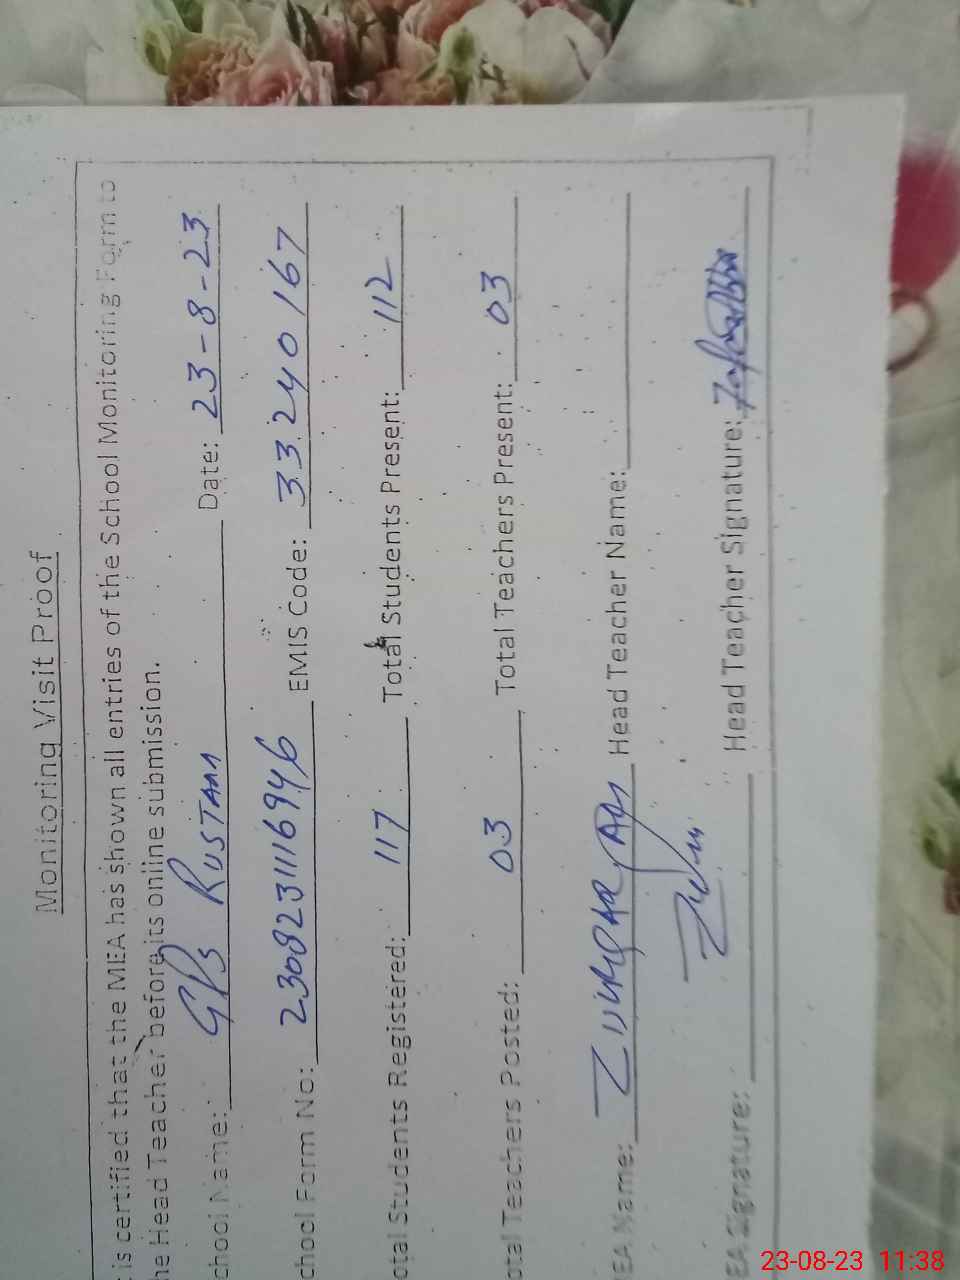 Monitoring Visit Proof
is certified that the MEA has shown all entries of the School Monitoring Form to
he Head Teacher before its online submission.
chool Name: GPS RUSTAM Date: 23-8-23
chool Form No: 23082311116946 EMIS Code: 33240167
otal Students Registered: 117 Total Students Present: 112
otal Teachers Posted: 03 Total Teachers Present: 03
EA Name: Head Teacher Name:
EA Signature: Head Teacher Signature:
23-08-23 11:38